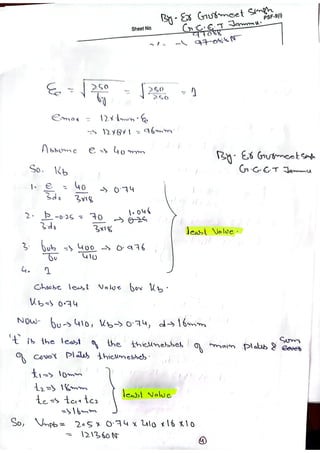 By- Er Gurmeet Singh
Sheet No.
PSF-011
G.C.E.T Jammu.
97
ξ = √250/fy = √250/250 = 1
emax = 12 x tmin · ξ
=> 12x8x1 = 96mm
Assume e => 40 mm
By- Er Gurmeet Singh
G.C.E.T Jammu
So. Kb
1. e/3do = 40/3x18 => 0.74
2. p/3do -0.25 = 70/3x18 => 1.046
3. fub/fu => 400/410 => 0.976
4. 1
least value.
Choose least value for Kb.
Kb=> 0.74
Now. fu-> 410, Kb-> 0.74, d->16mm
't' is the least of the thicknesshes of main plates & Sum
of cover plates thicknesshes.
t1=> 10mm
t2=> 16mm
tc => tc1+tc2
=>16mm
least value
So, Vnpb = 2.5 x 0.74 x 410 x16 x10
= 121360N